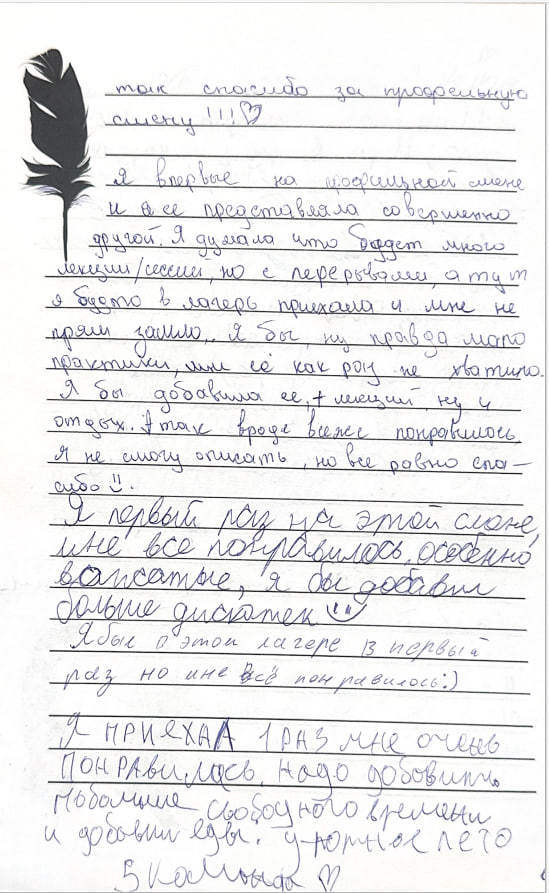 так спасибо за профельную
смену!!!♡
Я впервые на профильной смене
и я ее представляла совершенно
другой. Я думала что будет много
лекций/сессий, но с перерывами, а тут
я будто в лагерь приехала и мне не
прям зашло.. Я бы, ну правда мало
практики, мне её как раз не хватило.
Я бы добавила ее, + лекций, ну и
отдых.. А так вроде все же понравилось,
я не смогу описать, но все равно спа-
сибо
Я первый раз на этой смене,
мне все понравилось, особенно
вожатые, я бы добавил
больше дискотек
Я был в этом лагере в первый
раз но мне всё понравилось:)
Я ПРИЕХАЛ 1 РАЗ мне очень
ПОНРАВИЛАСЬ. Надо добовить
побольше свободного времени
и добавил еды. Уютное лето
5 команда ♡